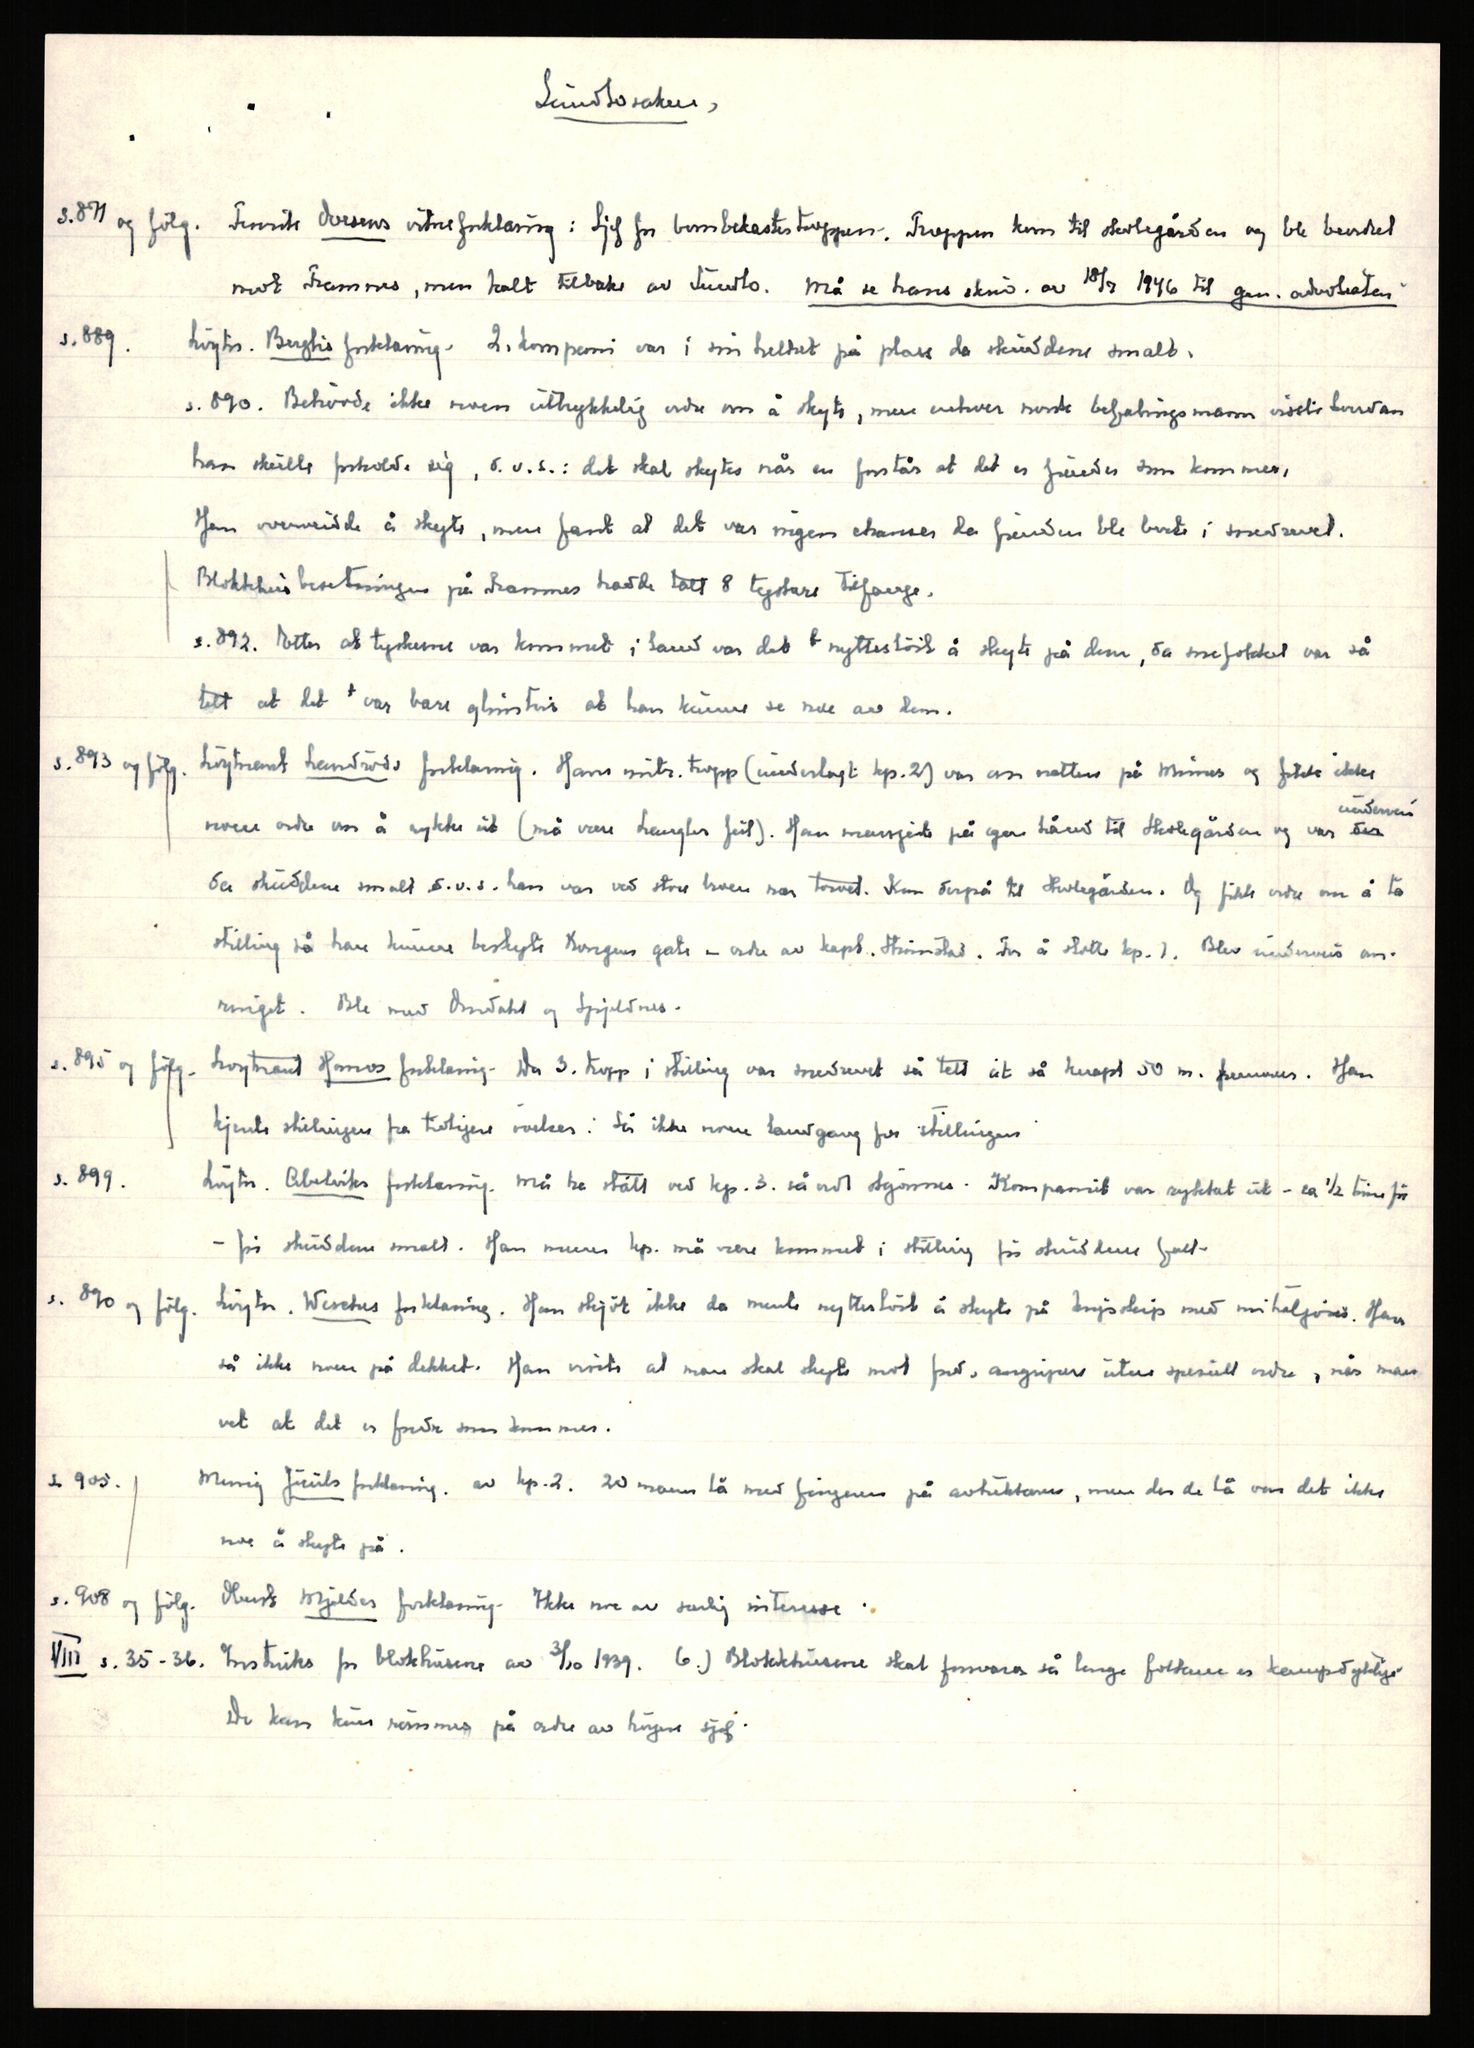 Sundlosaken,
s. 871 og følg. Fenrik Ovesens vitneforklaring: Sjef for bombekastertroppen. Troppen kom til skolegården og ble beordret
mot Framnes, men kalt tilbake av Sundlo. Må se hans skriv. av 18/7 1946 til gen. advokaten
s. 889. Løytn. Berglis forklaring. 2. kompani var i sin helhet på plass da skuddene smalt.
s. 890. Behøvde ikke noen uttrykkelig ordre om å skyte, men enhver norsk befalingsmann visste hvordan
han skulle forholde sig, d.v.s.: det skal skytes når en forstår at det er fiender som kommer.
Han overveidde å skyte, men fant at det var ingen chanser da fienden ble borte i snedrevet.
Blokkhusbesetningen på Framnes hadde tatt 8 tyskere tilfange.
s. 892. Etter at tyskerne var kommet i land var det nytteløst å skyte på dem, da snefokket var så
tett at det var bare glimtvis at han kunne se noe av dem.
s. 893 og følg. Løytnant Landrøds forklaring. Hans mitr. tropp (underlagt kp. 2) var om natten på Minnes og fikk ikke
noen ordre om å rykke ut (må være feil). Han marsjerte på egen hånd til skolegården og var der underveis
da skuddene smalt d.v.s. han var ved store broen nær torvet. Kom derpå til skolegården. Og fikk ordre om å ta
stilling så han kunne beskyte Kongens gate - ordre av kapt. Strømstad. For å støtte kp. 1. Blev underveis om-
ringet. Ble med Omdahl og Spjeldnes.
s. 895 og følg. Løytnant Hamos forklaring. Da 3. tropp i stilling var snedrevet så tett ut så knapt 50 m. fremover. Han
kjente stillingen fra tidligere øvelser. Så ikke noen landgang for stillingen
s. 899. Løytn. Abelviks forklaring. Må ha stått ved kp. 3. så vidt skjønnes. Kompaniet var rykket ut - ca 1/2 time før
- før skuddene smalt. Han mener kp. må være kommet i stilling før skuddene falt.
s. 890 og følg. Løytn. forklaring. Han skjøt ikke da mente nytteløst å skyte på krigsskip med mitraljøse. Han
så ikke noen på dekket. Han visste at man skal skyte mot angripere uten spesiell ordre, når man
vet at det er som kommer.
s. 905. Menig Juuls forklaring. av kp. 2. 20 mann lå med fingeren på avtrekkeren, men der de lå var det ikke
noe å skyte på.
s. 908 og følg. Oberst Mjeldes forklaring. Ikke noe av særlig interesse.
VIII s. 35-36. Instruks for blokkhusene av 3/10 1939. 6.) Blokkhusene skal forsvares så lenge folkene er kampdyktige
De kan kun rømmes på ordre av høyere sjef.